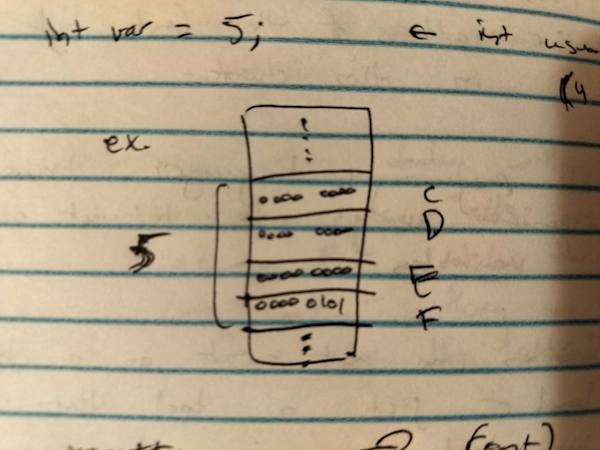 int var = 5; ← int
(4
ex.
0000 0000 C
0000 0000 D
5
0000 0000 E
0000 0101 F
(int)